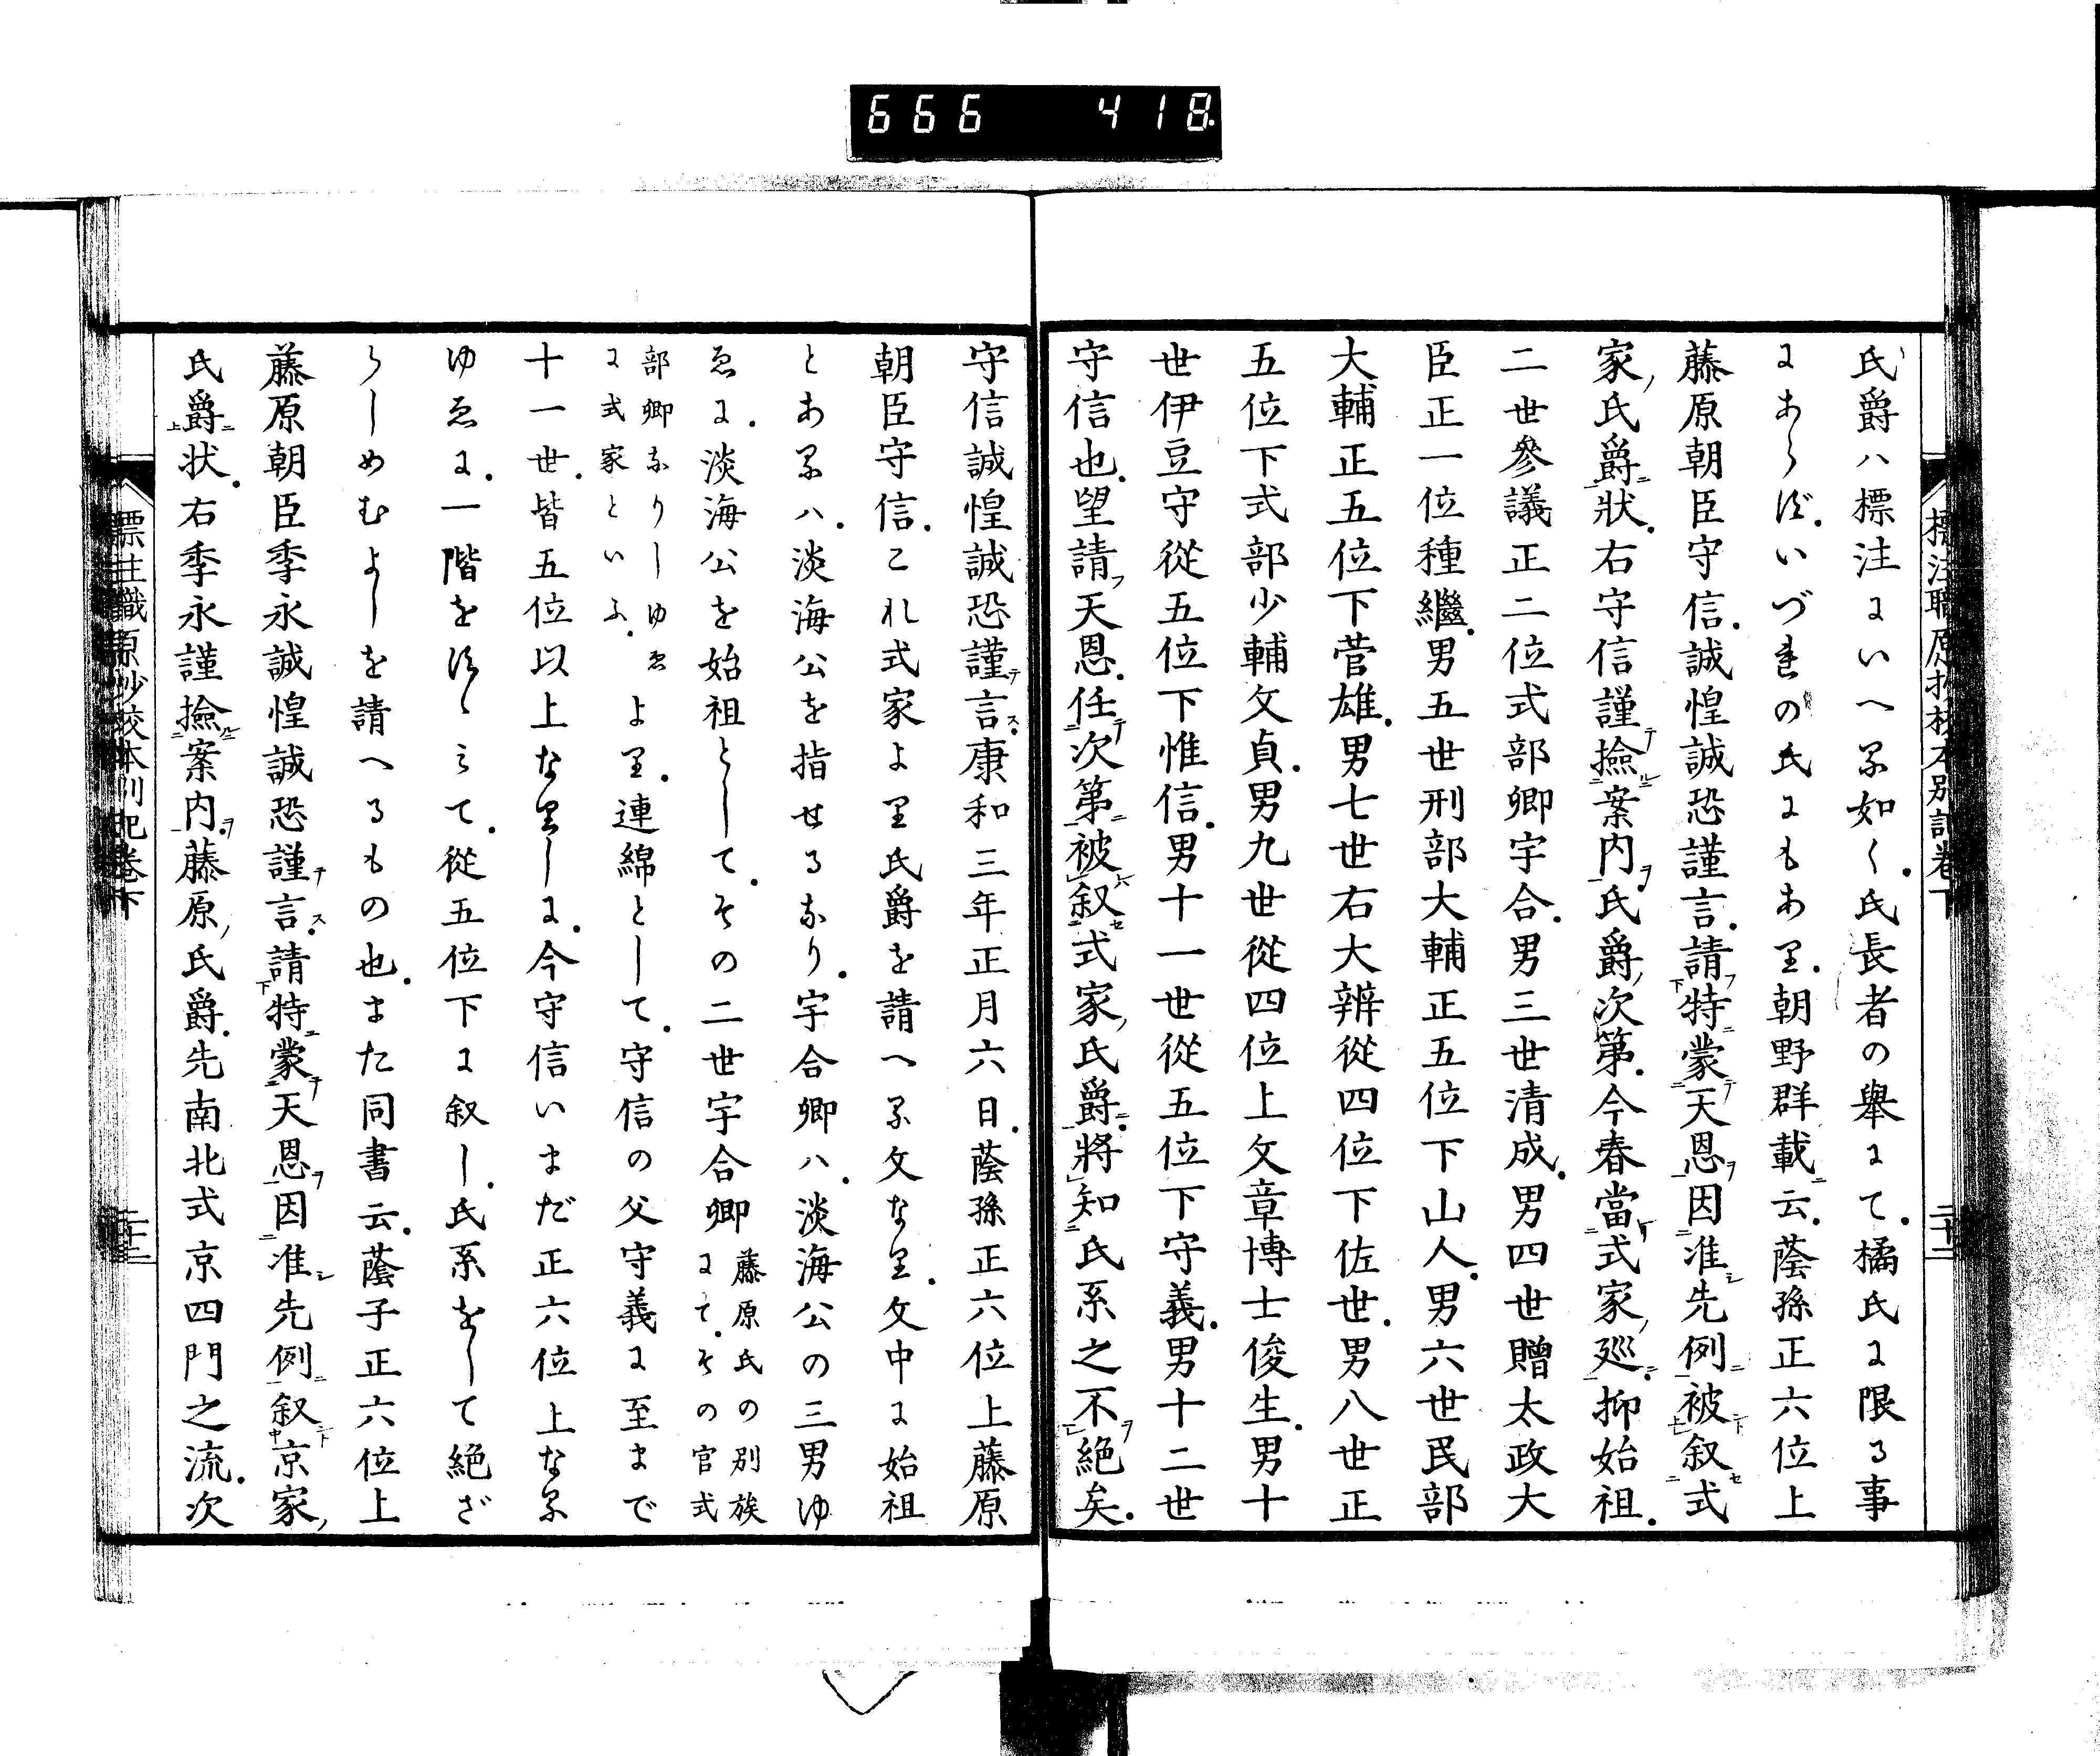 666 418
標注職原抄校本別記卷下
二十二
氏爵ハ標注にいへる如く。氏長者の舉にて。橘氏に限る事
にあらず。いづれの氏にもあり。朝野群載云。蔭孫正六位上
藤原朝臣守信。誠惶誠恐謹言。請特蒙天恩因准先例被叙式
家氏爵狀。右守信謹撿案内氏爵次第。今春當式家巡。抑始祖。
二世參議正二位式部卿宇合。男三世清成。男四世贈太政大
臣正一位種繼。男五世刑部大輔正五位下山人。男六世民部
大輔正五位下菅雄。男七世右大辨從四位下佐世。男八世正
五位下式部少輔文貞。男九世從四位上文章博士俊生。男十
世伊豆守從五位下惟信。男十一世從五位下守義。男十二世
守信也。望請天恩。任次第被叙式家氏爵。將知氏系之不絶矣。
守信誠惶誠恐謹言。康和三年正月六日。蔭孫正六位上藤原
朝臣守信。これ式家より氏爵を請へる文なり。文中に始祖
とあるハ。淡海公を指せるなり。宇合卿ハ。淡海公の三男ゆ
ゑに。淡海公を始祖として。その二世宇合卿藤原氏の別族
にて。その官式
部卿なりしゆゑ
に式家といふ。より。連綿として。守信の父守義に至まで
十一世。皆五位以上なりしに。今守信いまだ正六位上なる
ゆゑに。一階をすゝみて。從五位下に叙し。氏系をして絶ざ
らしめむよしを請へるもの也。また同書云。蔭子正六位上
藤原朝臣季永誠惶誠恐謹言。請特蒙天恩因准先例叙京家
氏爵状。右季永謹撿案内。藤原氏爵。先南北式京四門之流。次
標注職原抄校本別記卷下
二十三